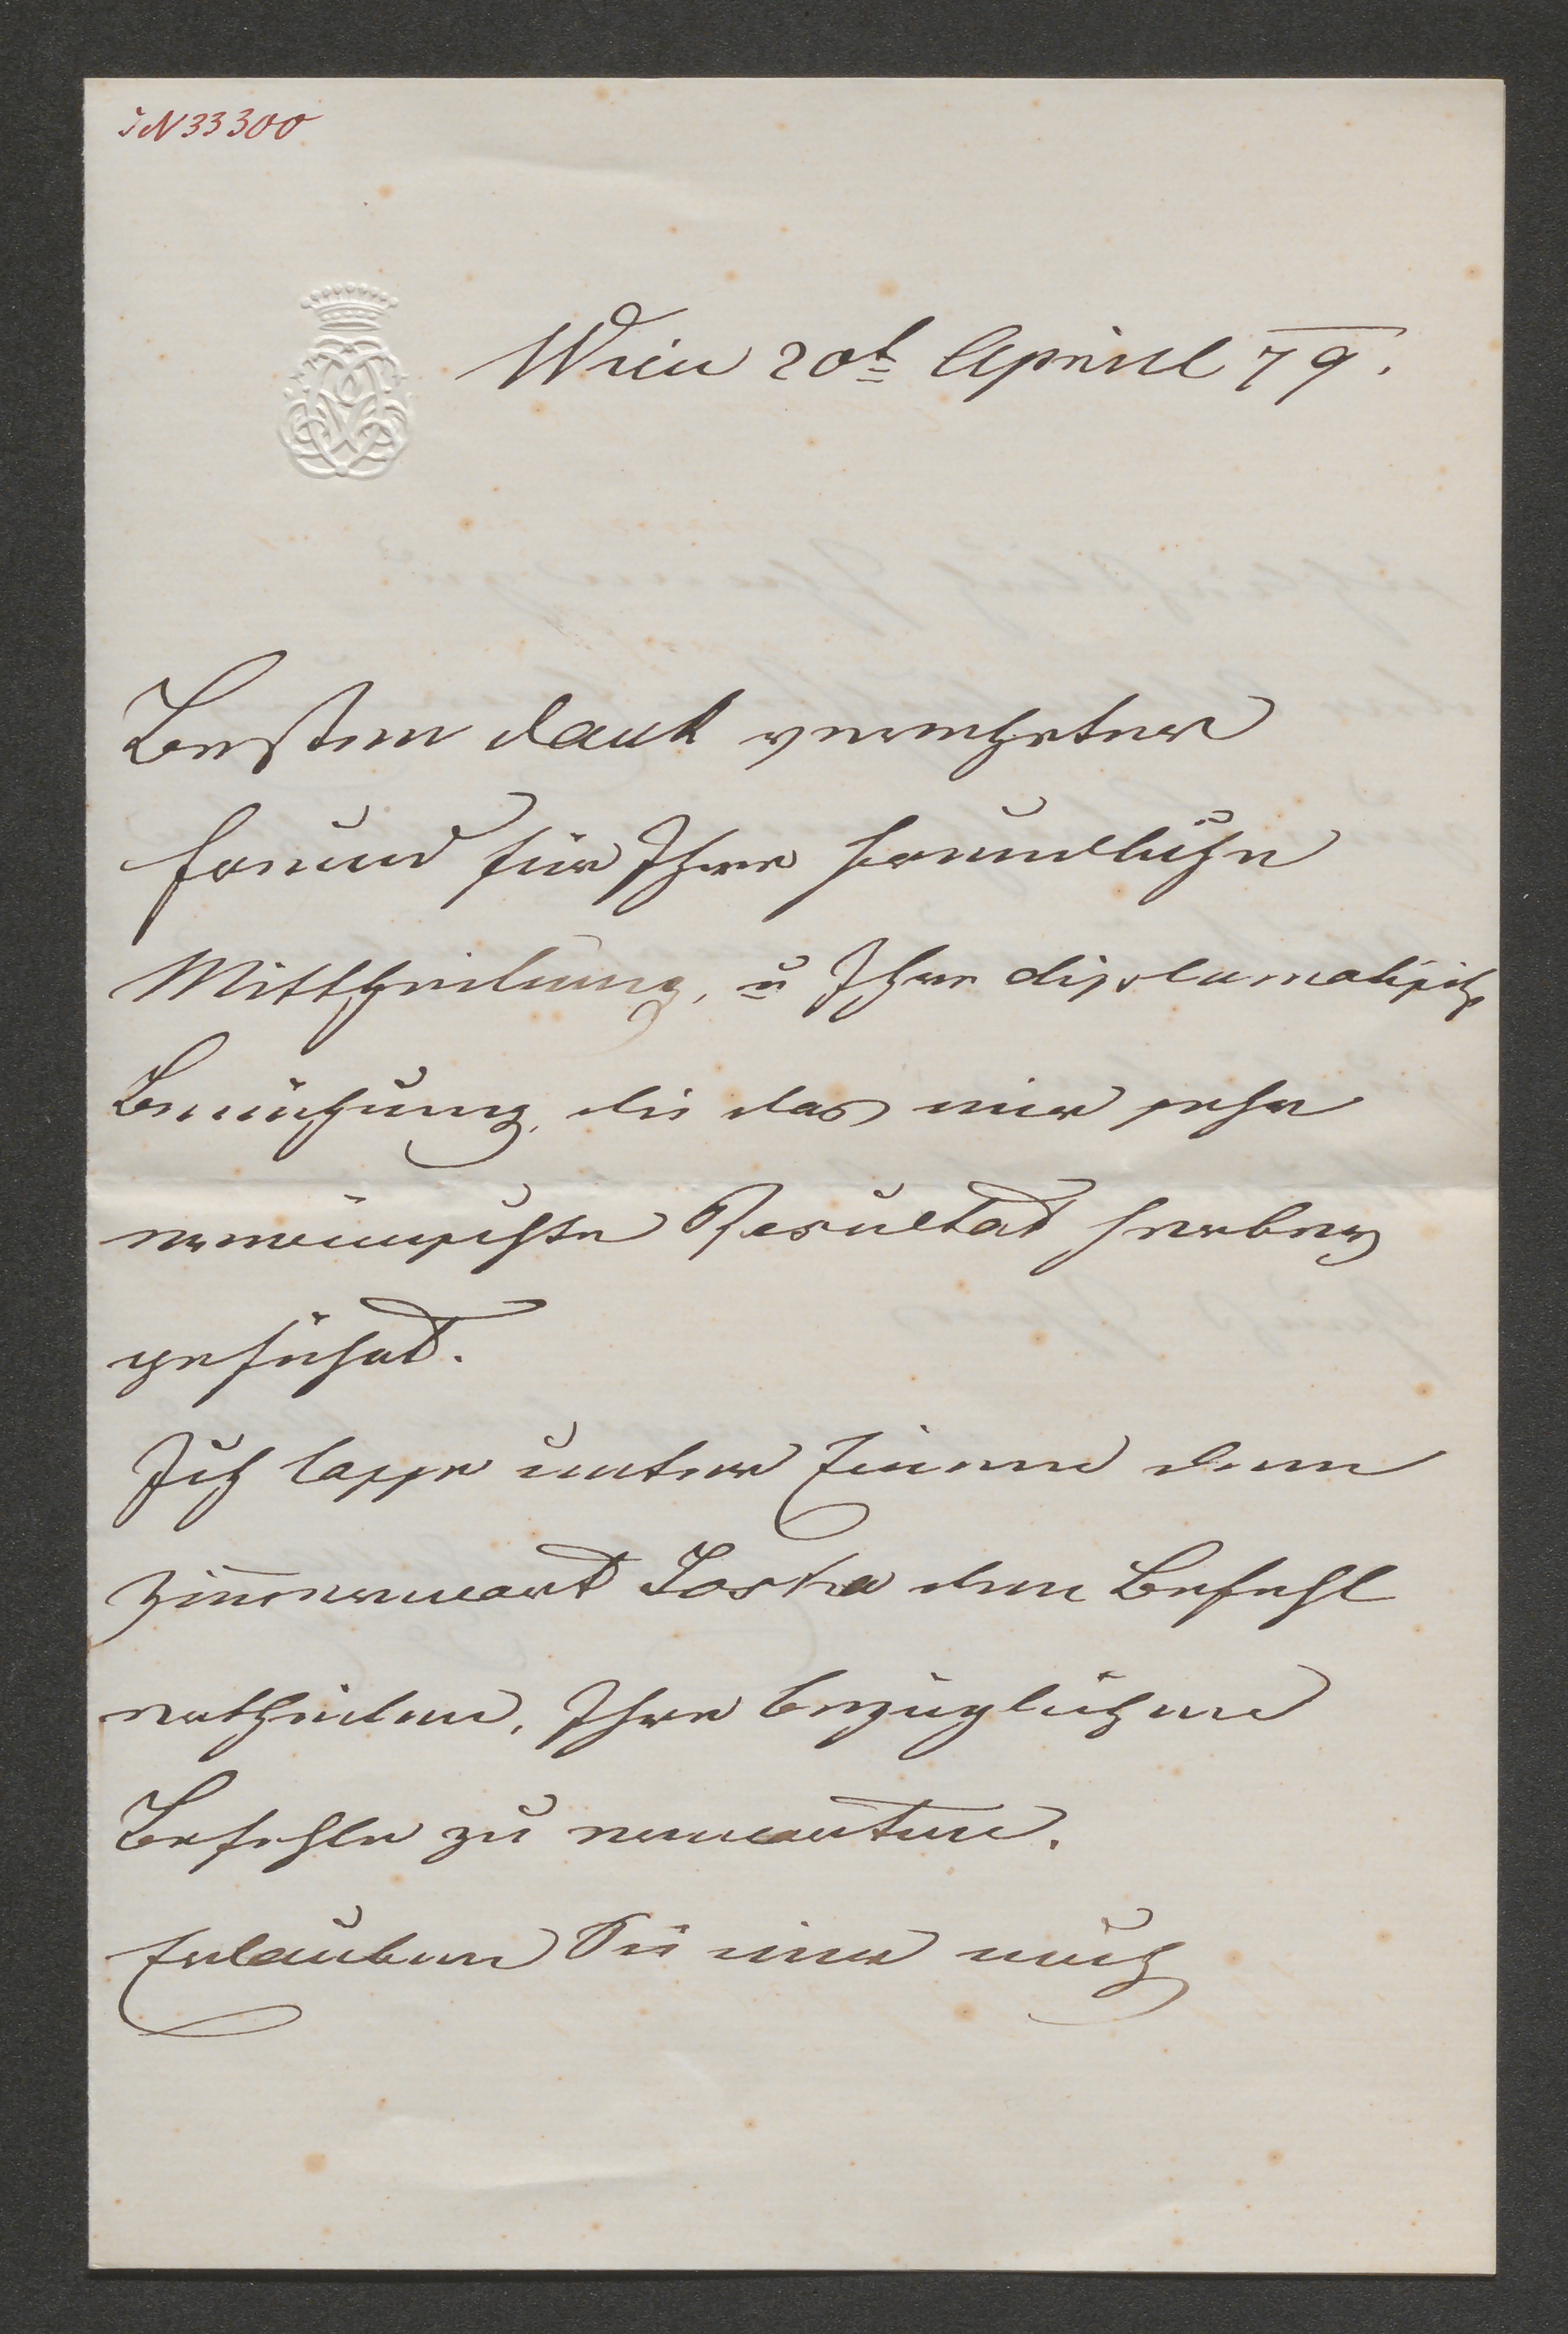 IN 33300
Wien 20t Aprill 79.
Besten Dank verehrter
Freund für Ihre freundliche
Mittheilung, u Ihre diplomatische
Bemühung, die das mir sehr
erwünschte Resultat herbey
geführt.
Ich lasse unter Einem dem
Zimmerwart Loska den Befehl
ertheilen, Ihre bezüglichen
Befehle zu erwarten.
Erlauben Sie mir mich